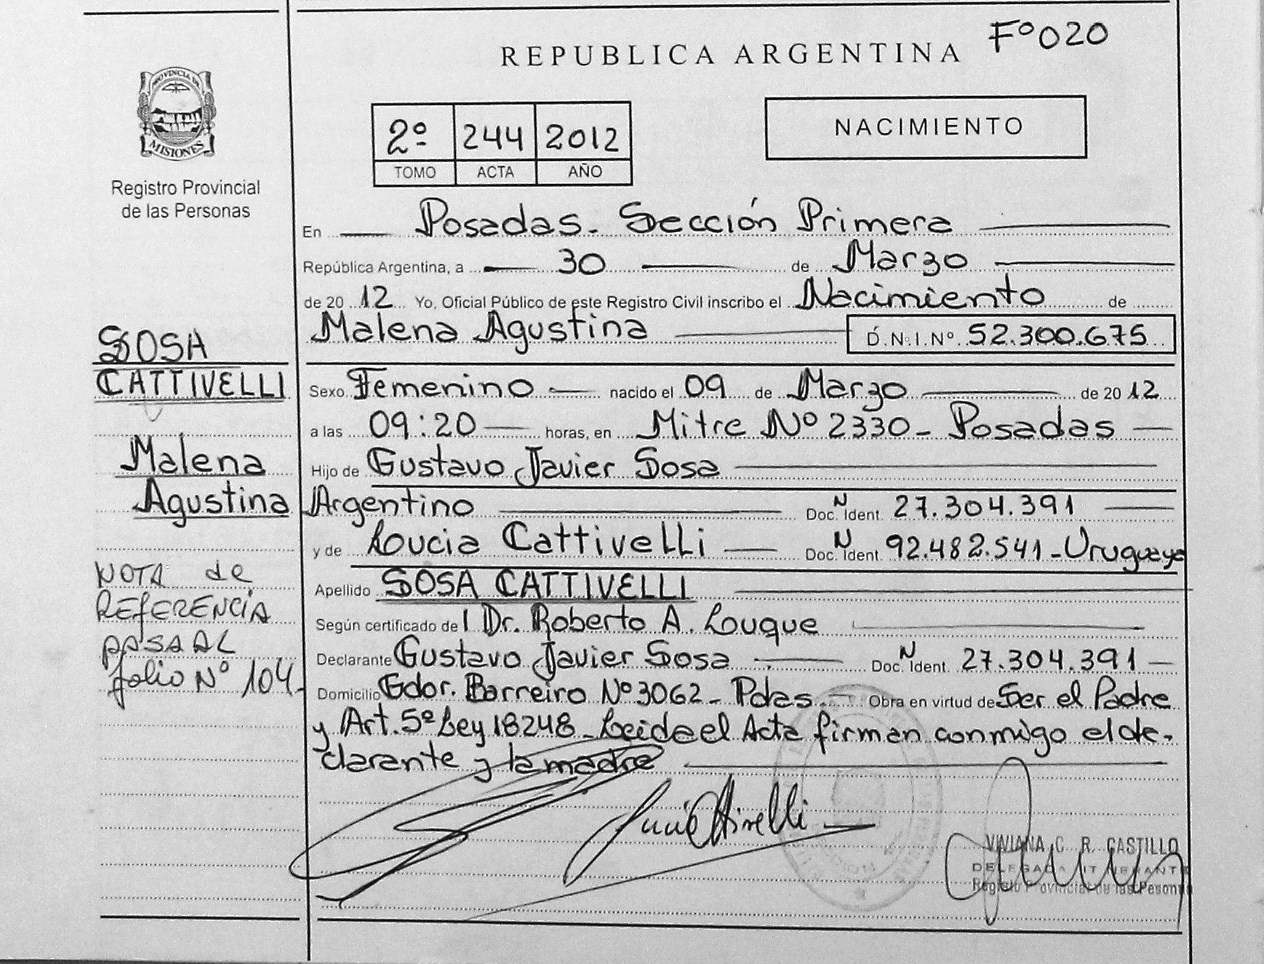 REPUBLICA ARGENTINA
Fº020
PROVINCIA DE
MISIONES
Registro Provincial
de las Personas
2º 244 2012
TOMO ACTA AÑO
NACIMIENTO
En Posadas. Sección Primera
República Argentina, a 30 de Marzo
de 20 12 Yo, Oficial Público de este Registro Civil inscribo el Nacimiento de
Malena Agustina D.N.I.Nº 52.300.675
Sexo Femenino nacido el 09 de Marzo de 20 12
a las 09:20 horas, en Mitre Nº 2330- Posadas
Hijo de Gustavo Javier Sosa
Argentino Doc. Ident. N 27.304.391
y de Loucia Cattivelli Doc. Ident. N 92.482.541-Uruguaya
Apellido SOSA CATTIVELLI
Según certificado de Dr. Roberto A. Louque
Declarante Gustavo Javier Sosa Doc. Ident. N 27.304.391
Domicilio Gdor. Barreiro Nº3062- Pdas. Obra en virtud de Ser el Padre
y Art. 5º Ley 18248-Leida el Acta firman conmigo el de-
clarante y la madre
SOSA
CATTIVELLI
Malena
Agustina
NOTA de
REFERENCIA
PASA AL
folio Nº 104-
VIVIANA C. R. CASTILLO
DELEGADA ITINERANTE
Registro Provincial de las Personas